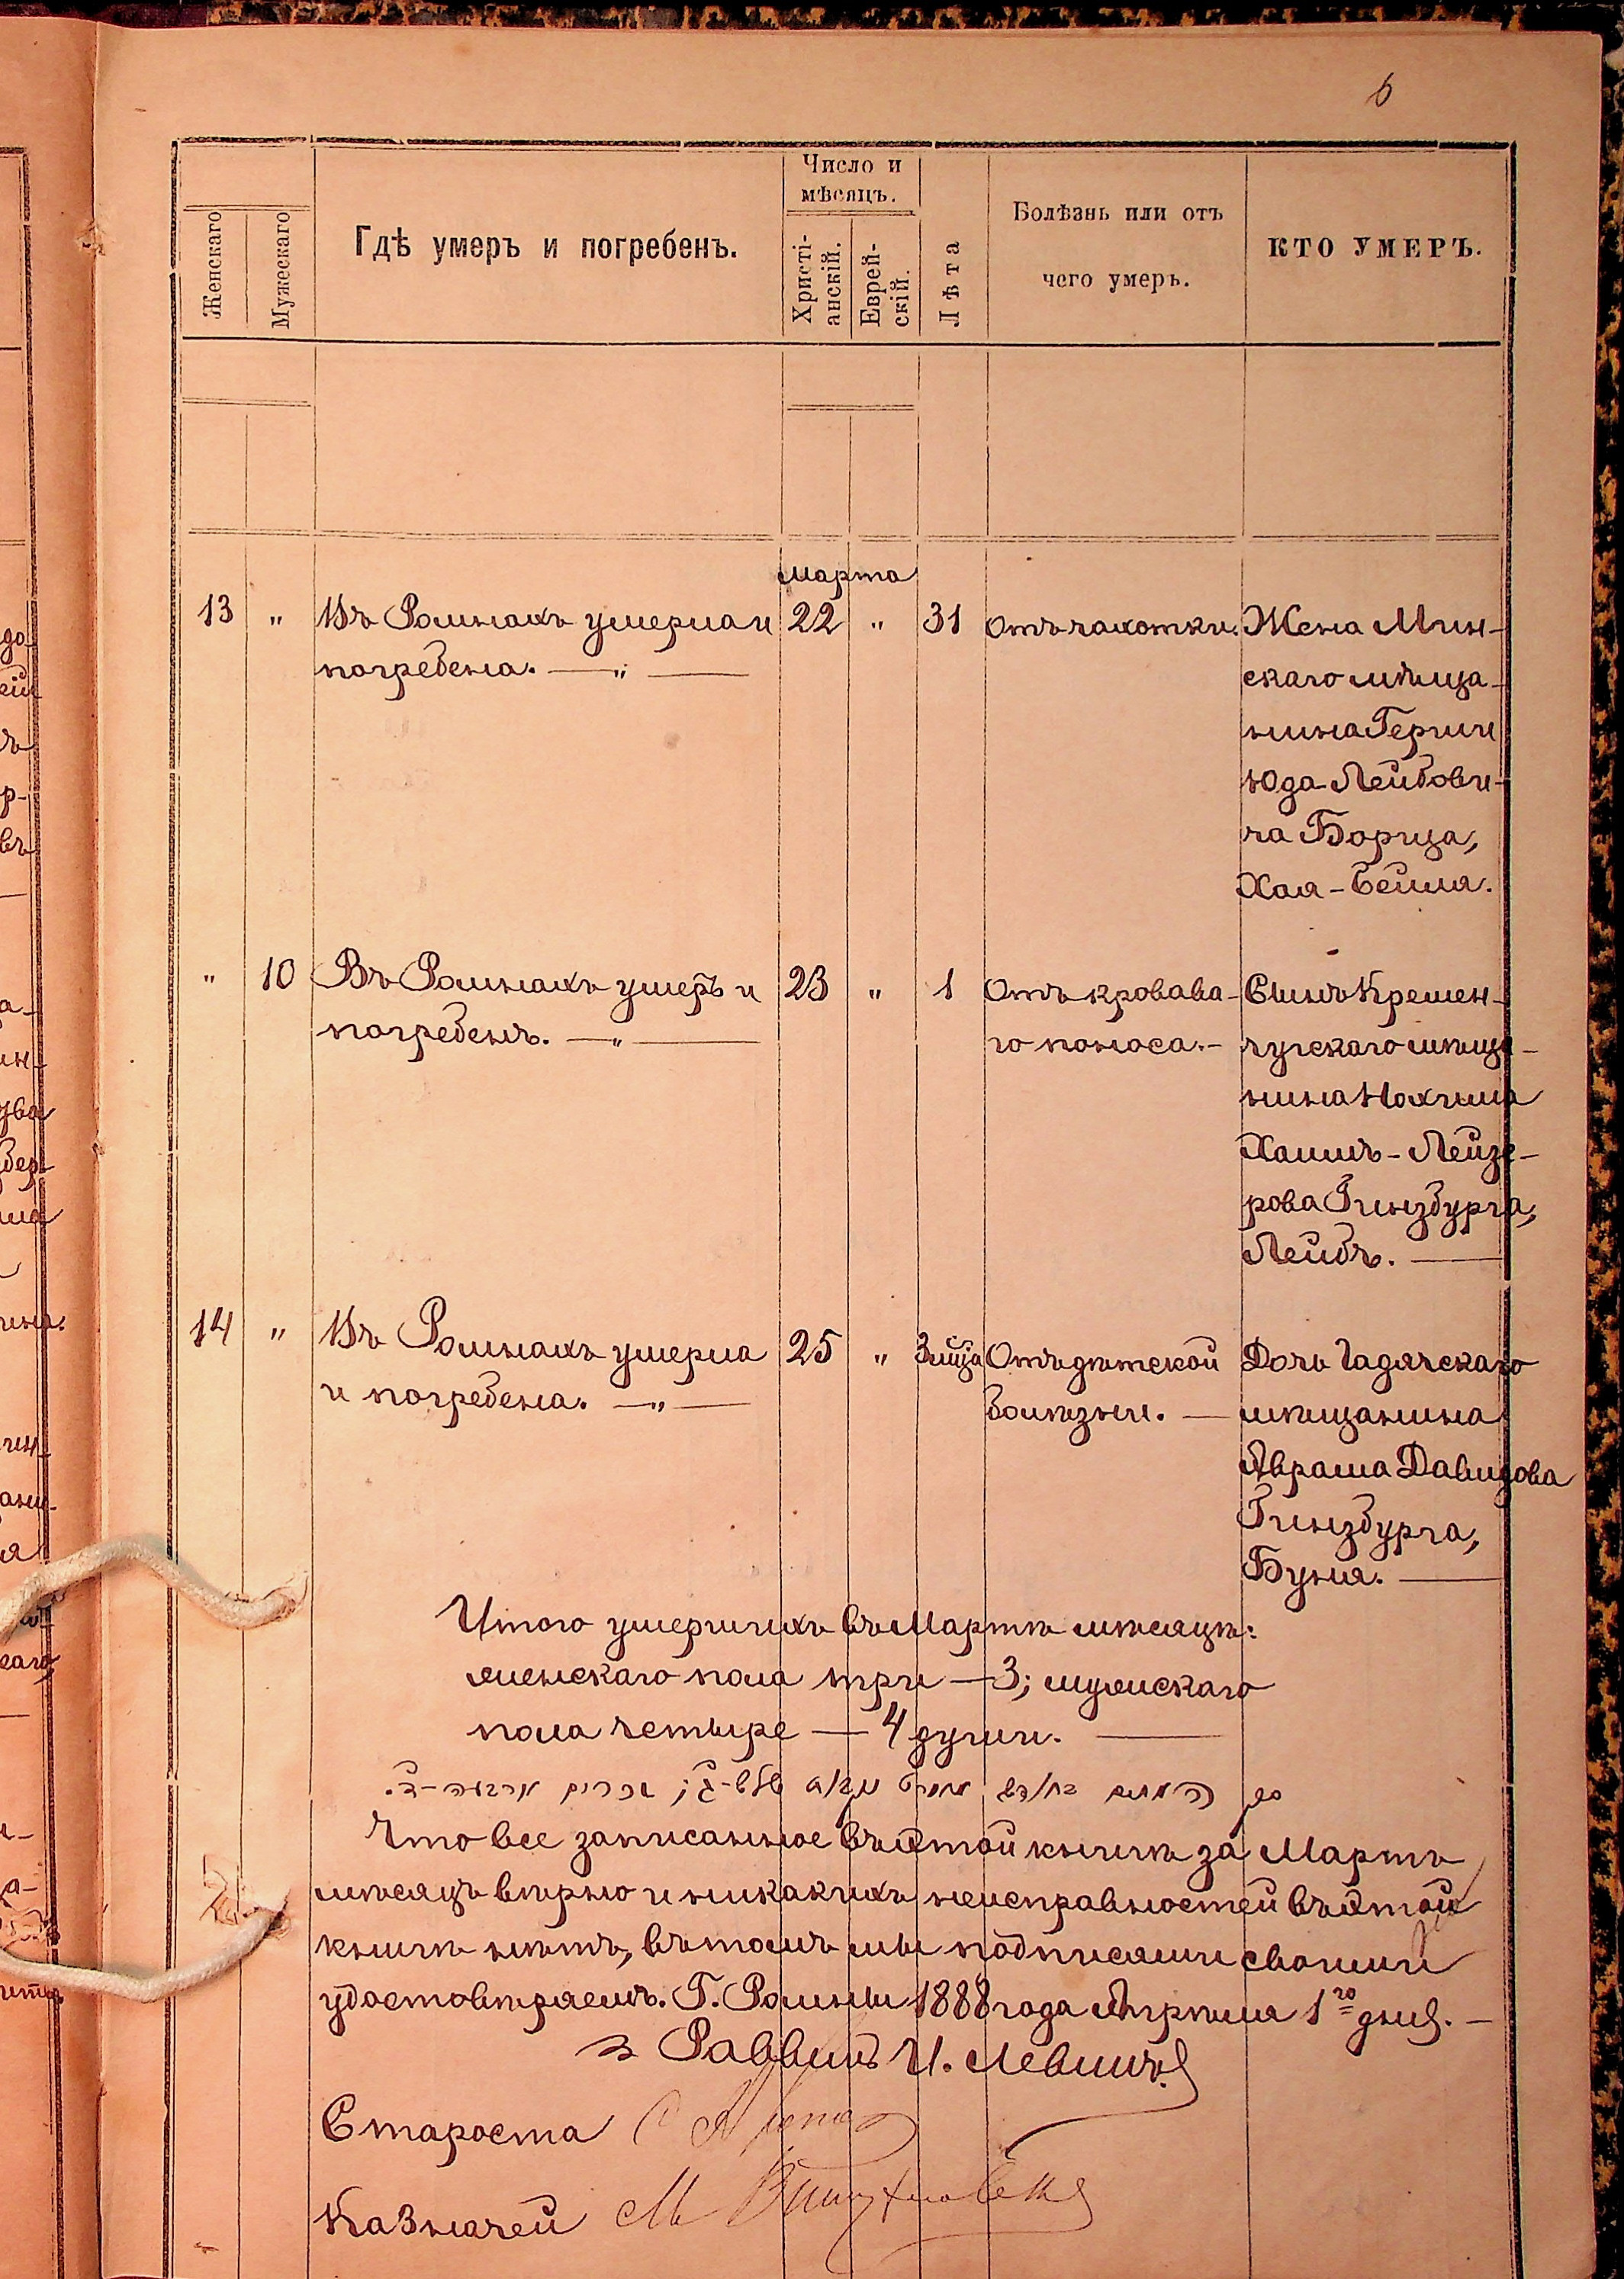 6
Число и
мѣсяцъ.
Женскаго
Мужескаго
Гдѣ умеръ и погребенъ.
Христі-
анскій.
Еврей-
скій.
Лѣта
Болѣзнь или отъ
чего умеръ.
КТО УМЕРЪ.
Марта
13 " Въ Ромнахъ умерла и 22 " 31 Отъ чахотки. Жена Мин-
погребена. — " — скаго мѣща-
нина Герши
Юда-Лейбови-
ча Борца,
Хая-Бейля.
" 10 Въ Ромнахъ умеръ и 23 " 1 Отъ кровава- Сынъ Кремен-
погребенъ. — " — го поноса. - чугскаго мѣща-
нина Нохима
Хаимъ-Лейзе-
рова Гинзбурга,
Лейбъ. —
14 " Въ Ромнахъ умерла 25 " 3 мца Отъ дѣтской Дочь Гадячскаго
и погребена. — " — болѣзни. — мѣщанина
Аврама Давидова
Гинзбурга,
Буня. —
Итого умершихъ въ Мартѣ мѣсяцѣ:
женскаго пола три — 3; мужскаго
пола четыре — 4 души. —
Что все записанное въ этой книгѣ за Мартъ
мѣсяцъ вѣрно и никакихъ неисправностей въ этой
книгѣ нѣтъ, въ томъ мы подписями своими
удостовѣряемъ. Г. Ромны 1888 года Апрѣля 1го дня. —
Раввинъ И. Левинъ
Староста
Казначей М